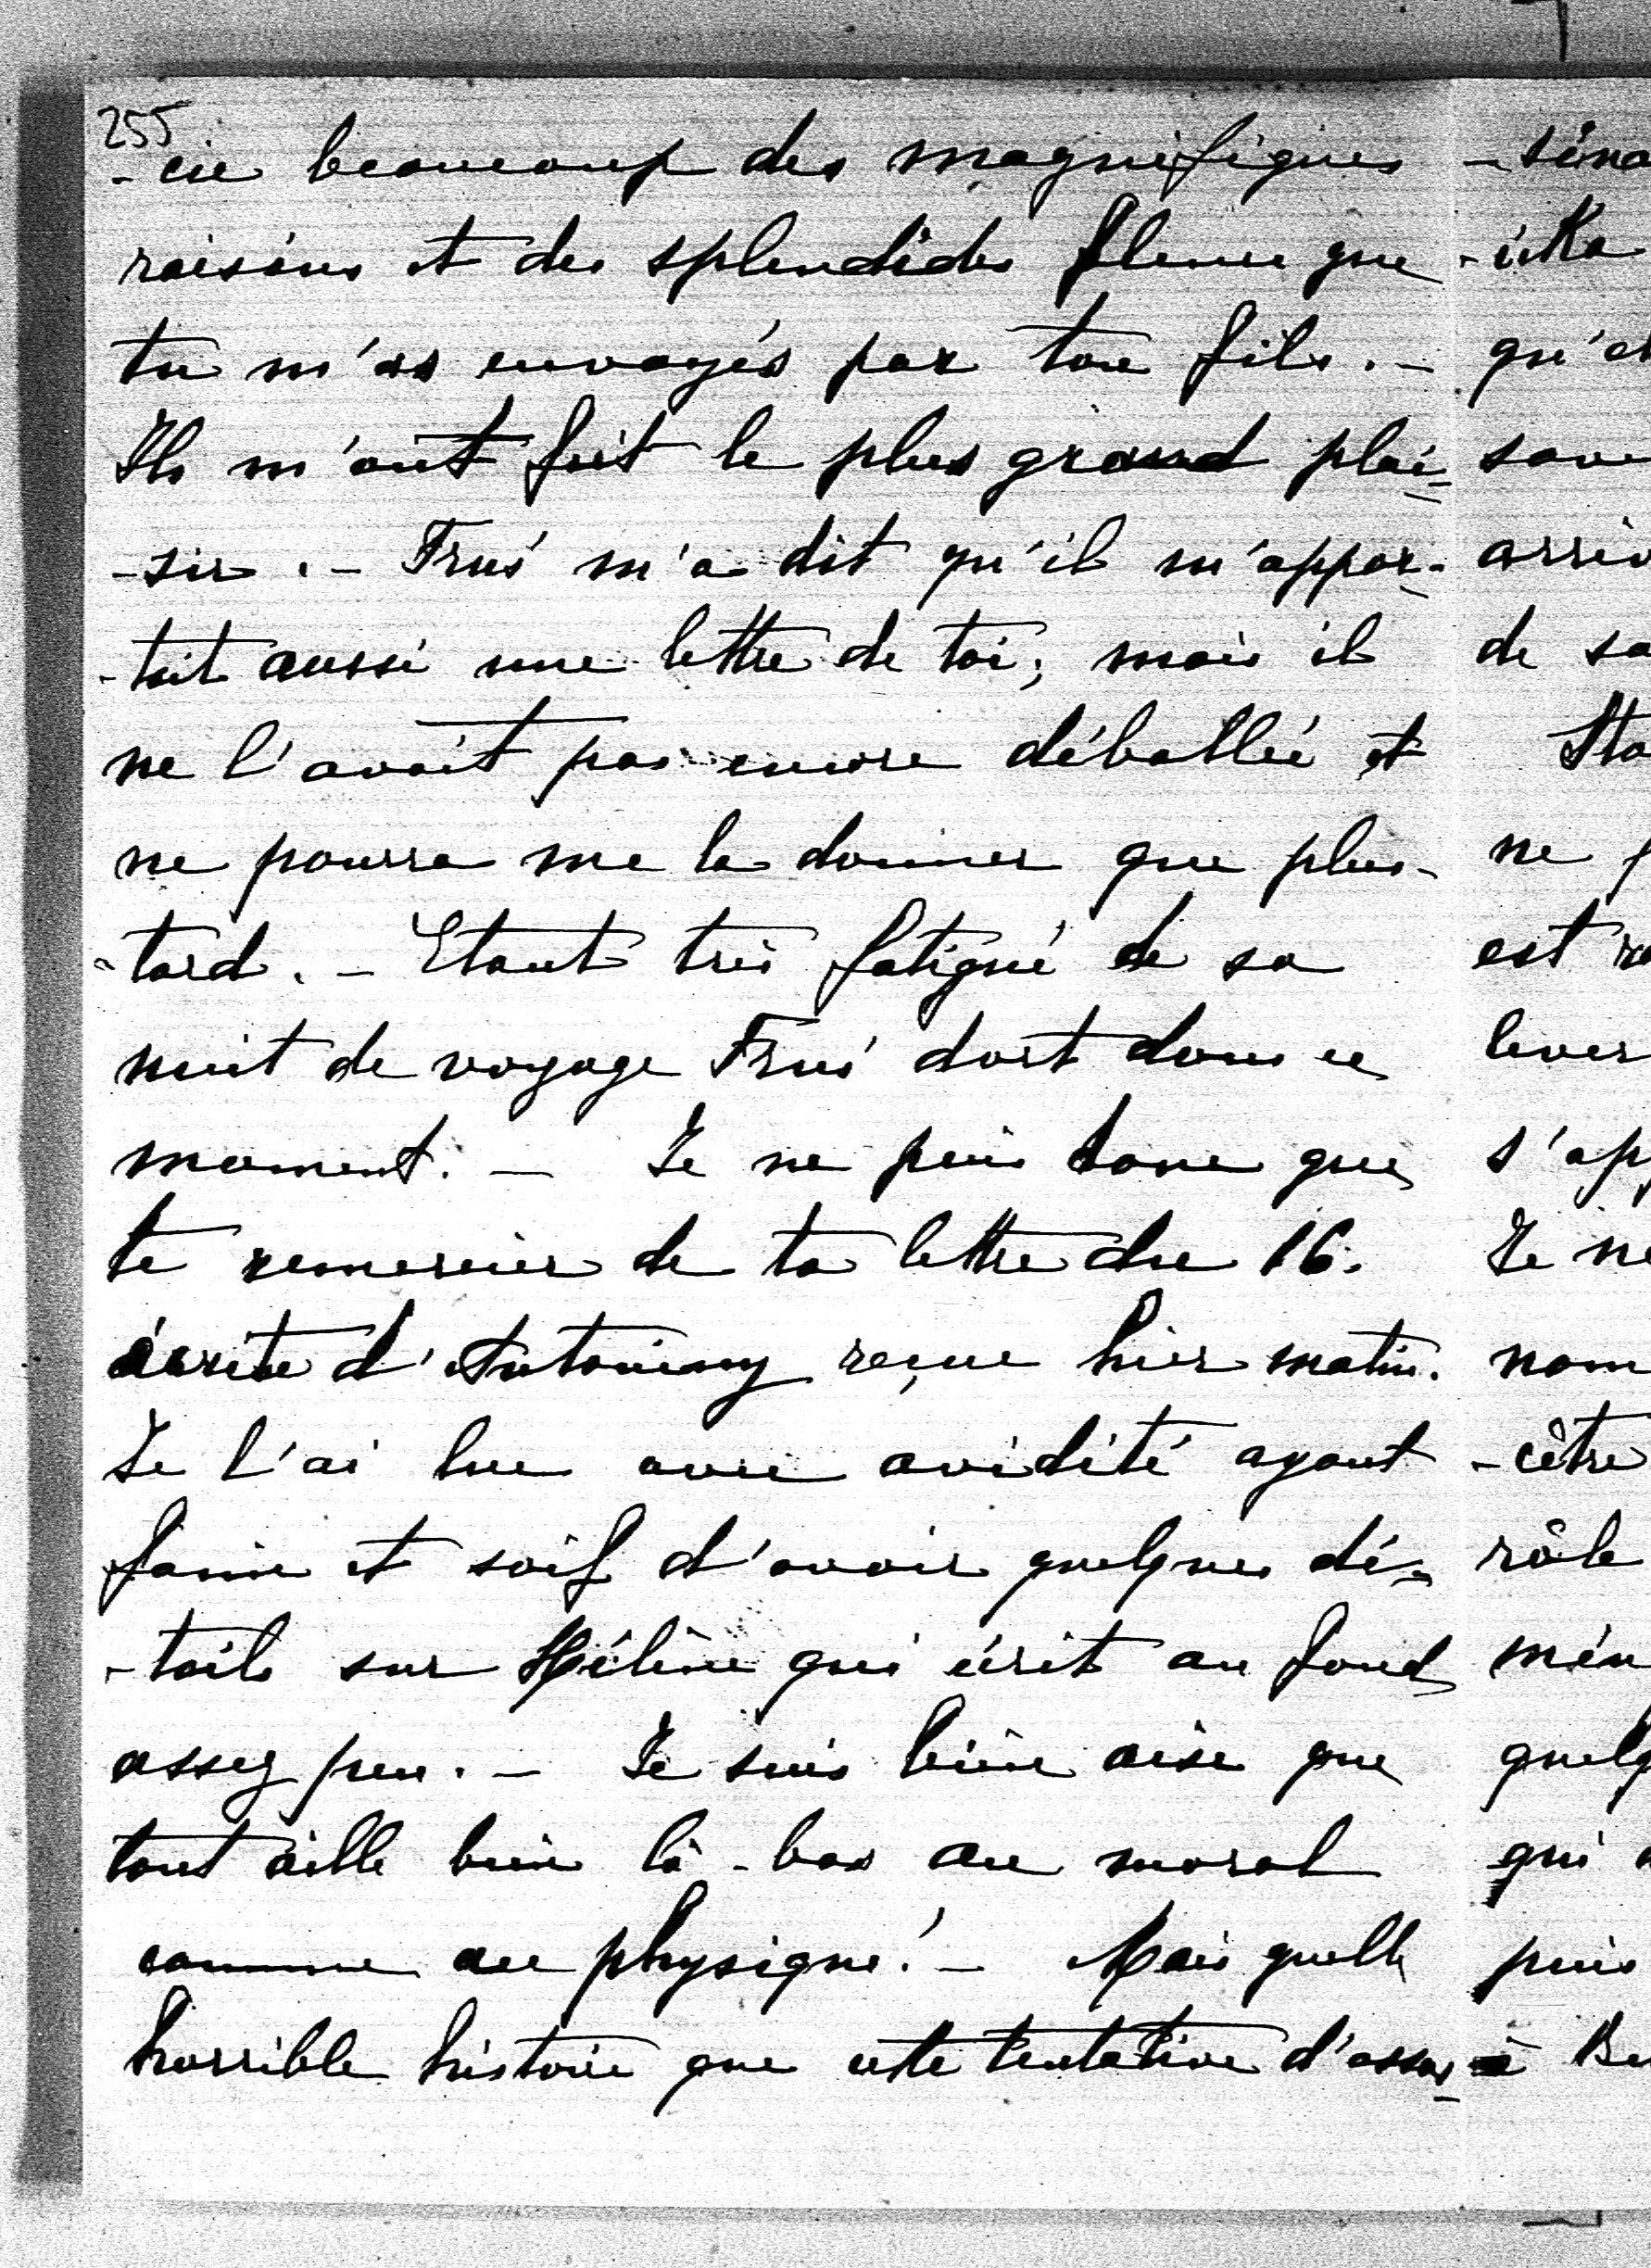 255
-cie beaucoup des magnifiques
raisins et des splendides fleurs que
tu m'as envoyés par ton fils. –
Ils m'ont fait le plus grand plai-
-sir. – Frus' m'a dit qu'il m'appor-
-tait aussi une lettre de toi; mais il
ne l'avait pas encore déballée et
ne pourra me la donner que plus-
-tard. – Etant très fatigué de sa
nuit de voyage Frus' dort dans ce
moment. – Je ne puis donc que
te remercier de ta lettre du 16.
écrite d'Antoniny reçue hier matin.
Je l'ai lue avec avidité ayant
faim et soif d'avoir quelques dé-
-tails sur Hélène qui écrit au fond
assez peu. – Je suis bien aise que
tout aille bien là-bas au moral
comme au physique! – Mais quelle
horrible histoire que cette tentative d'assas-
-sina
qu'e
sav
arriv
de sa
ne p
est re
lever
s'ap
Je ne
nom
-cêtre
rôle
mén
quelq
qui
puis
à Be